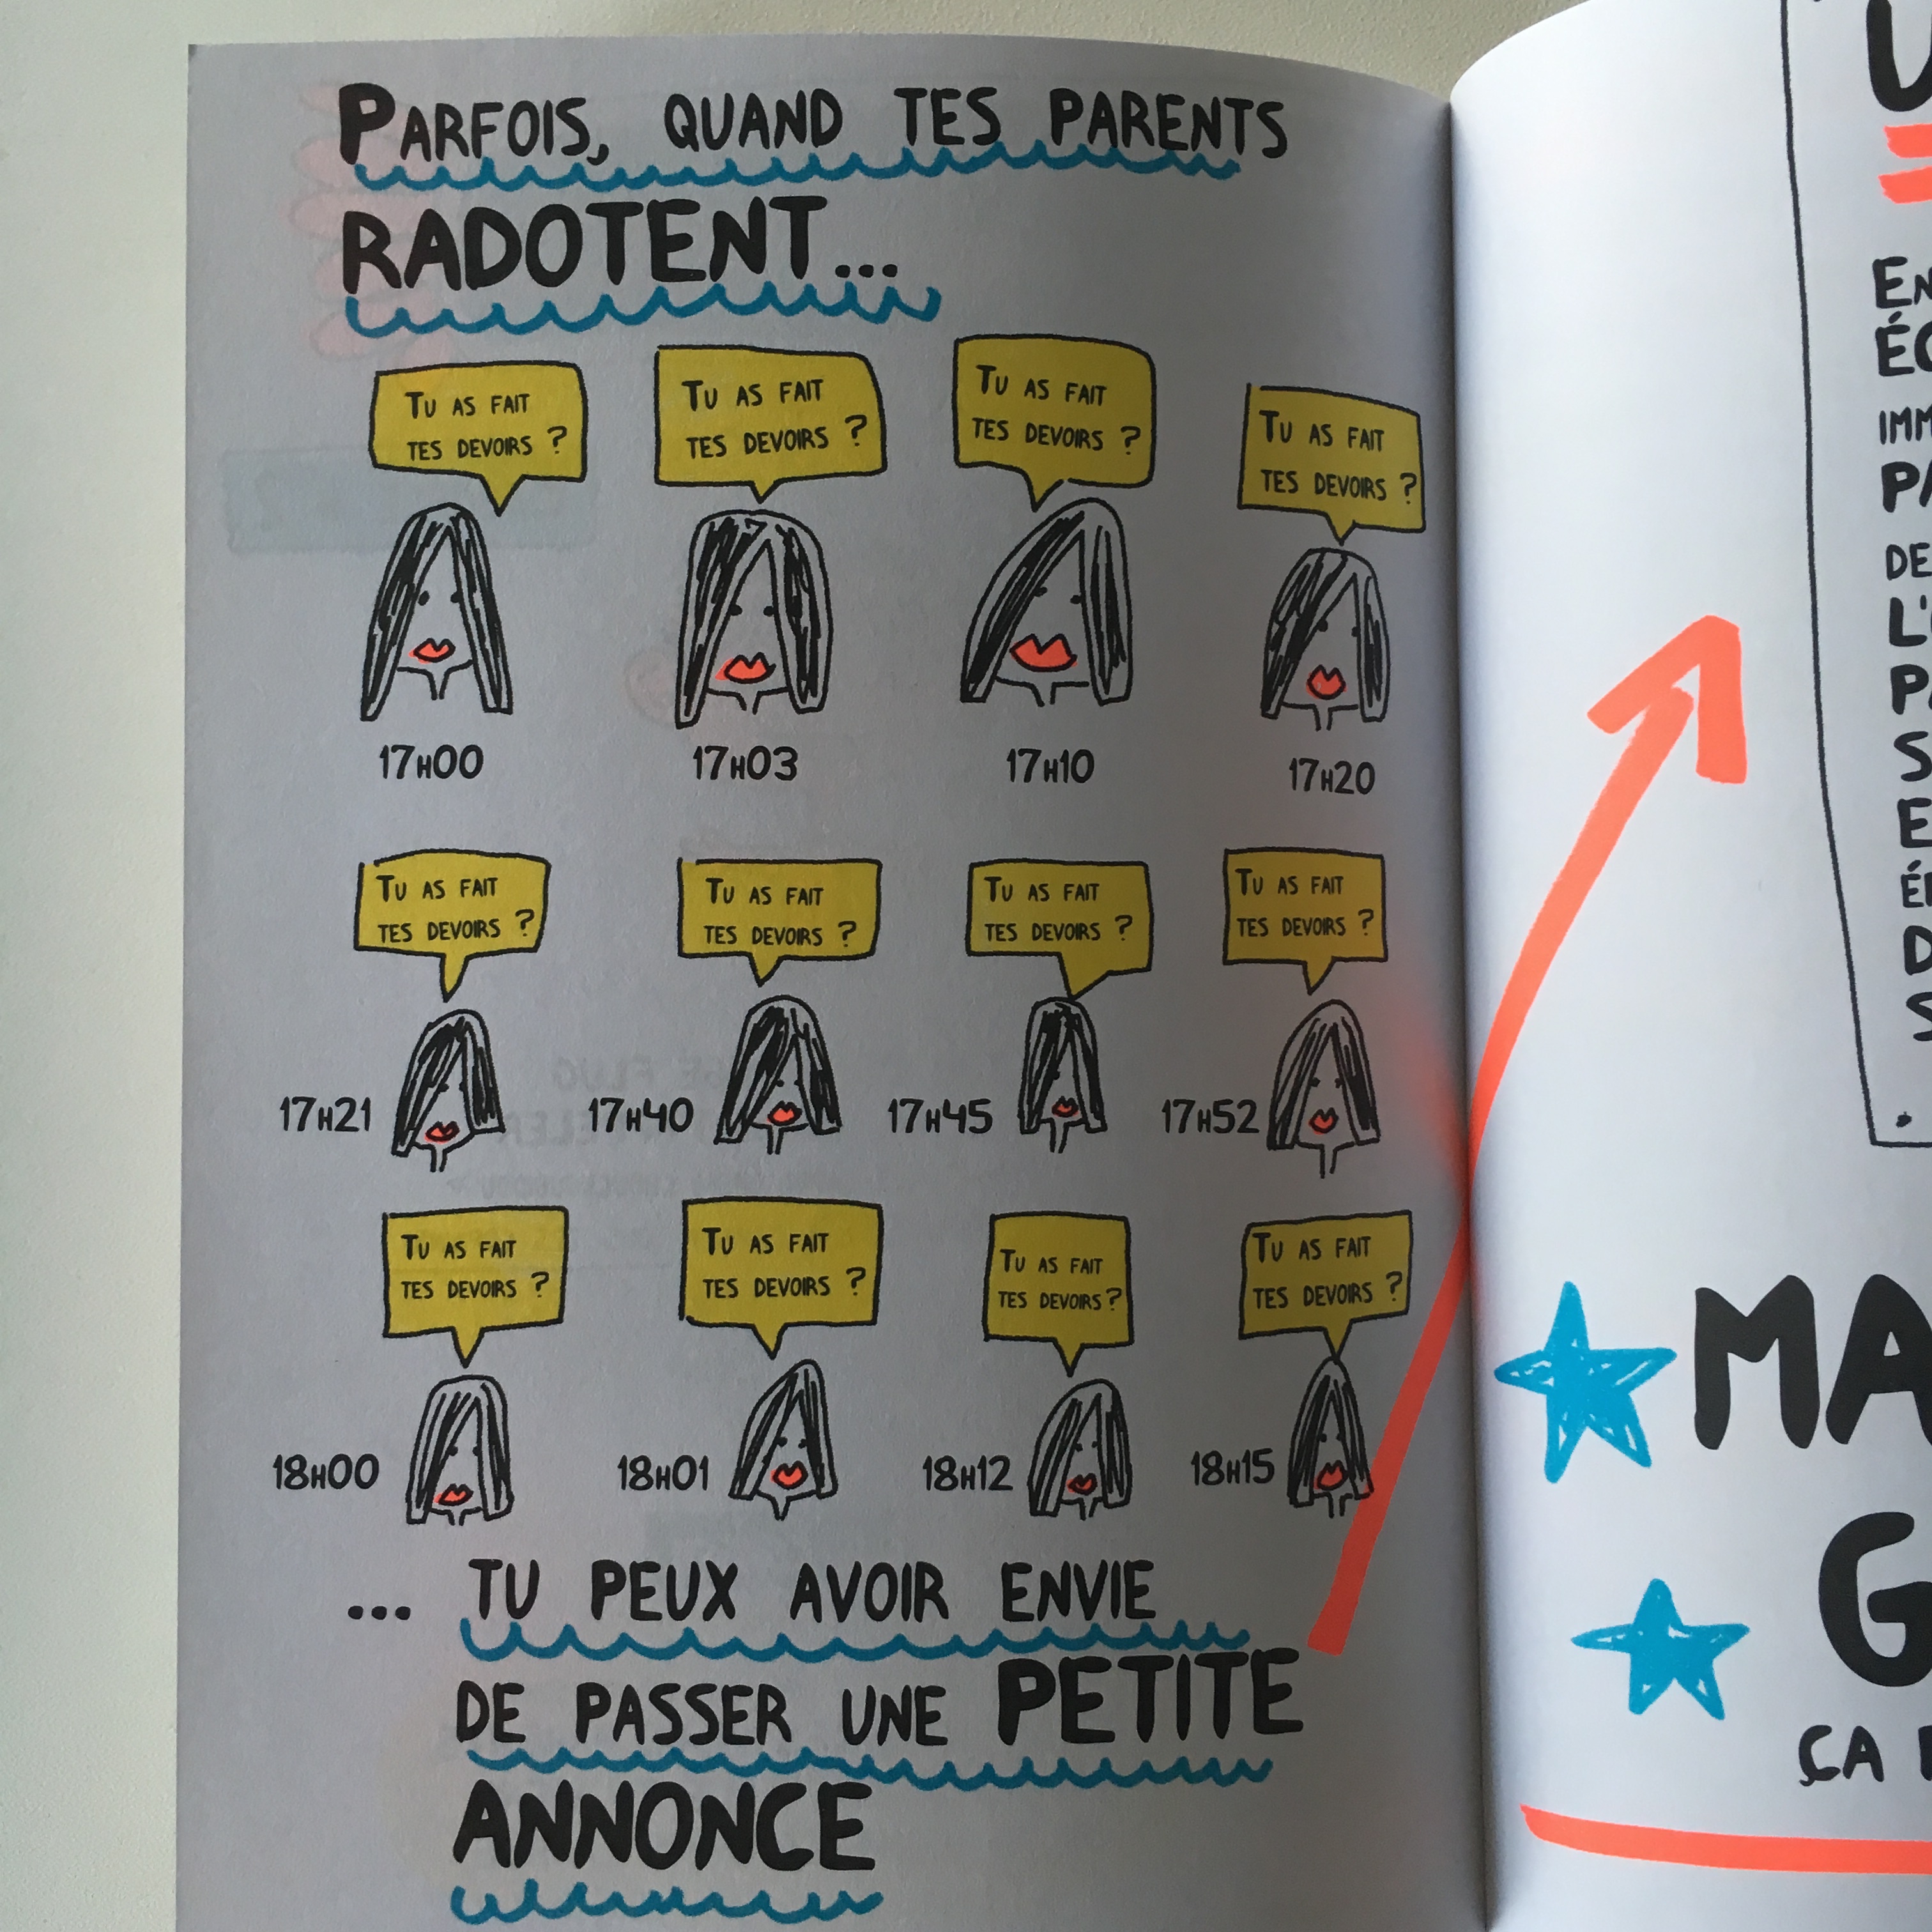 PARFOIS, QUAND TES PARENTS
RADOTENT...
TU AS FAIT
TES DEVOIRS ?
17H00
TU AS FAIT
TES DEVOIRS ?
17H03
TU AS FAIT
TES DEVOIRS ?
17H10
TU AS FAIT
TES DEVOIRS ?
17H20
TU AS FAIT
TES DEVOIRS ?
17H21
TU AS FAIT
TES DEVOIRS ?
17H40
TU AS FAIT
TES DEVOIRS ?
17H45
TU AS FAIT
TES DEVOIRS ?
17H52
TU AS FAIT
TES DEVOIRS ?
18H00
TU AS FAIT
TES DEVOIRS ?
18H01
TU AS FAIT
TES DEVOIRS ?
18H12
TU AS FAIT
TES DEVOIRS ?
18H15
... TU PEUX AVOIR ENVIE
DE PASSER UNE PETITE
ANNONCE
ÇA